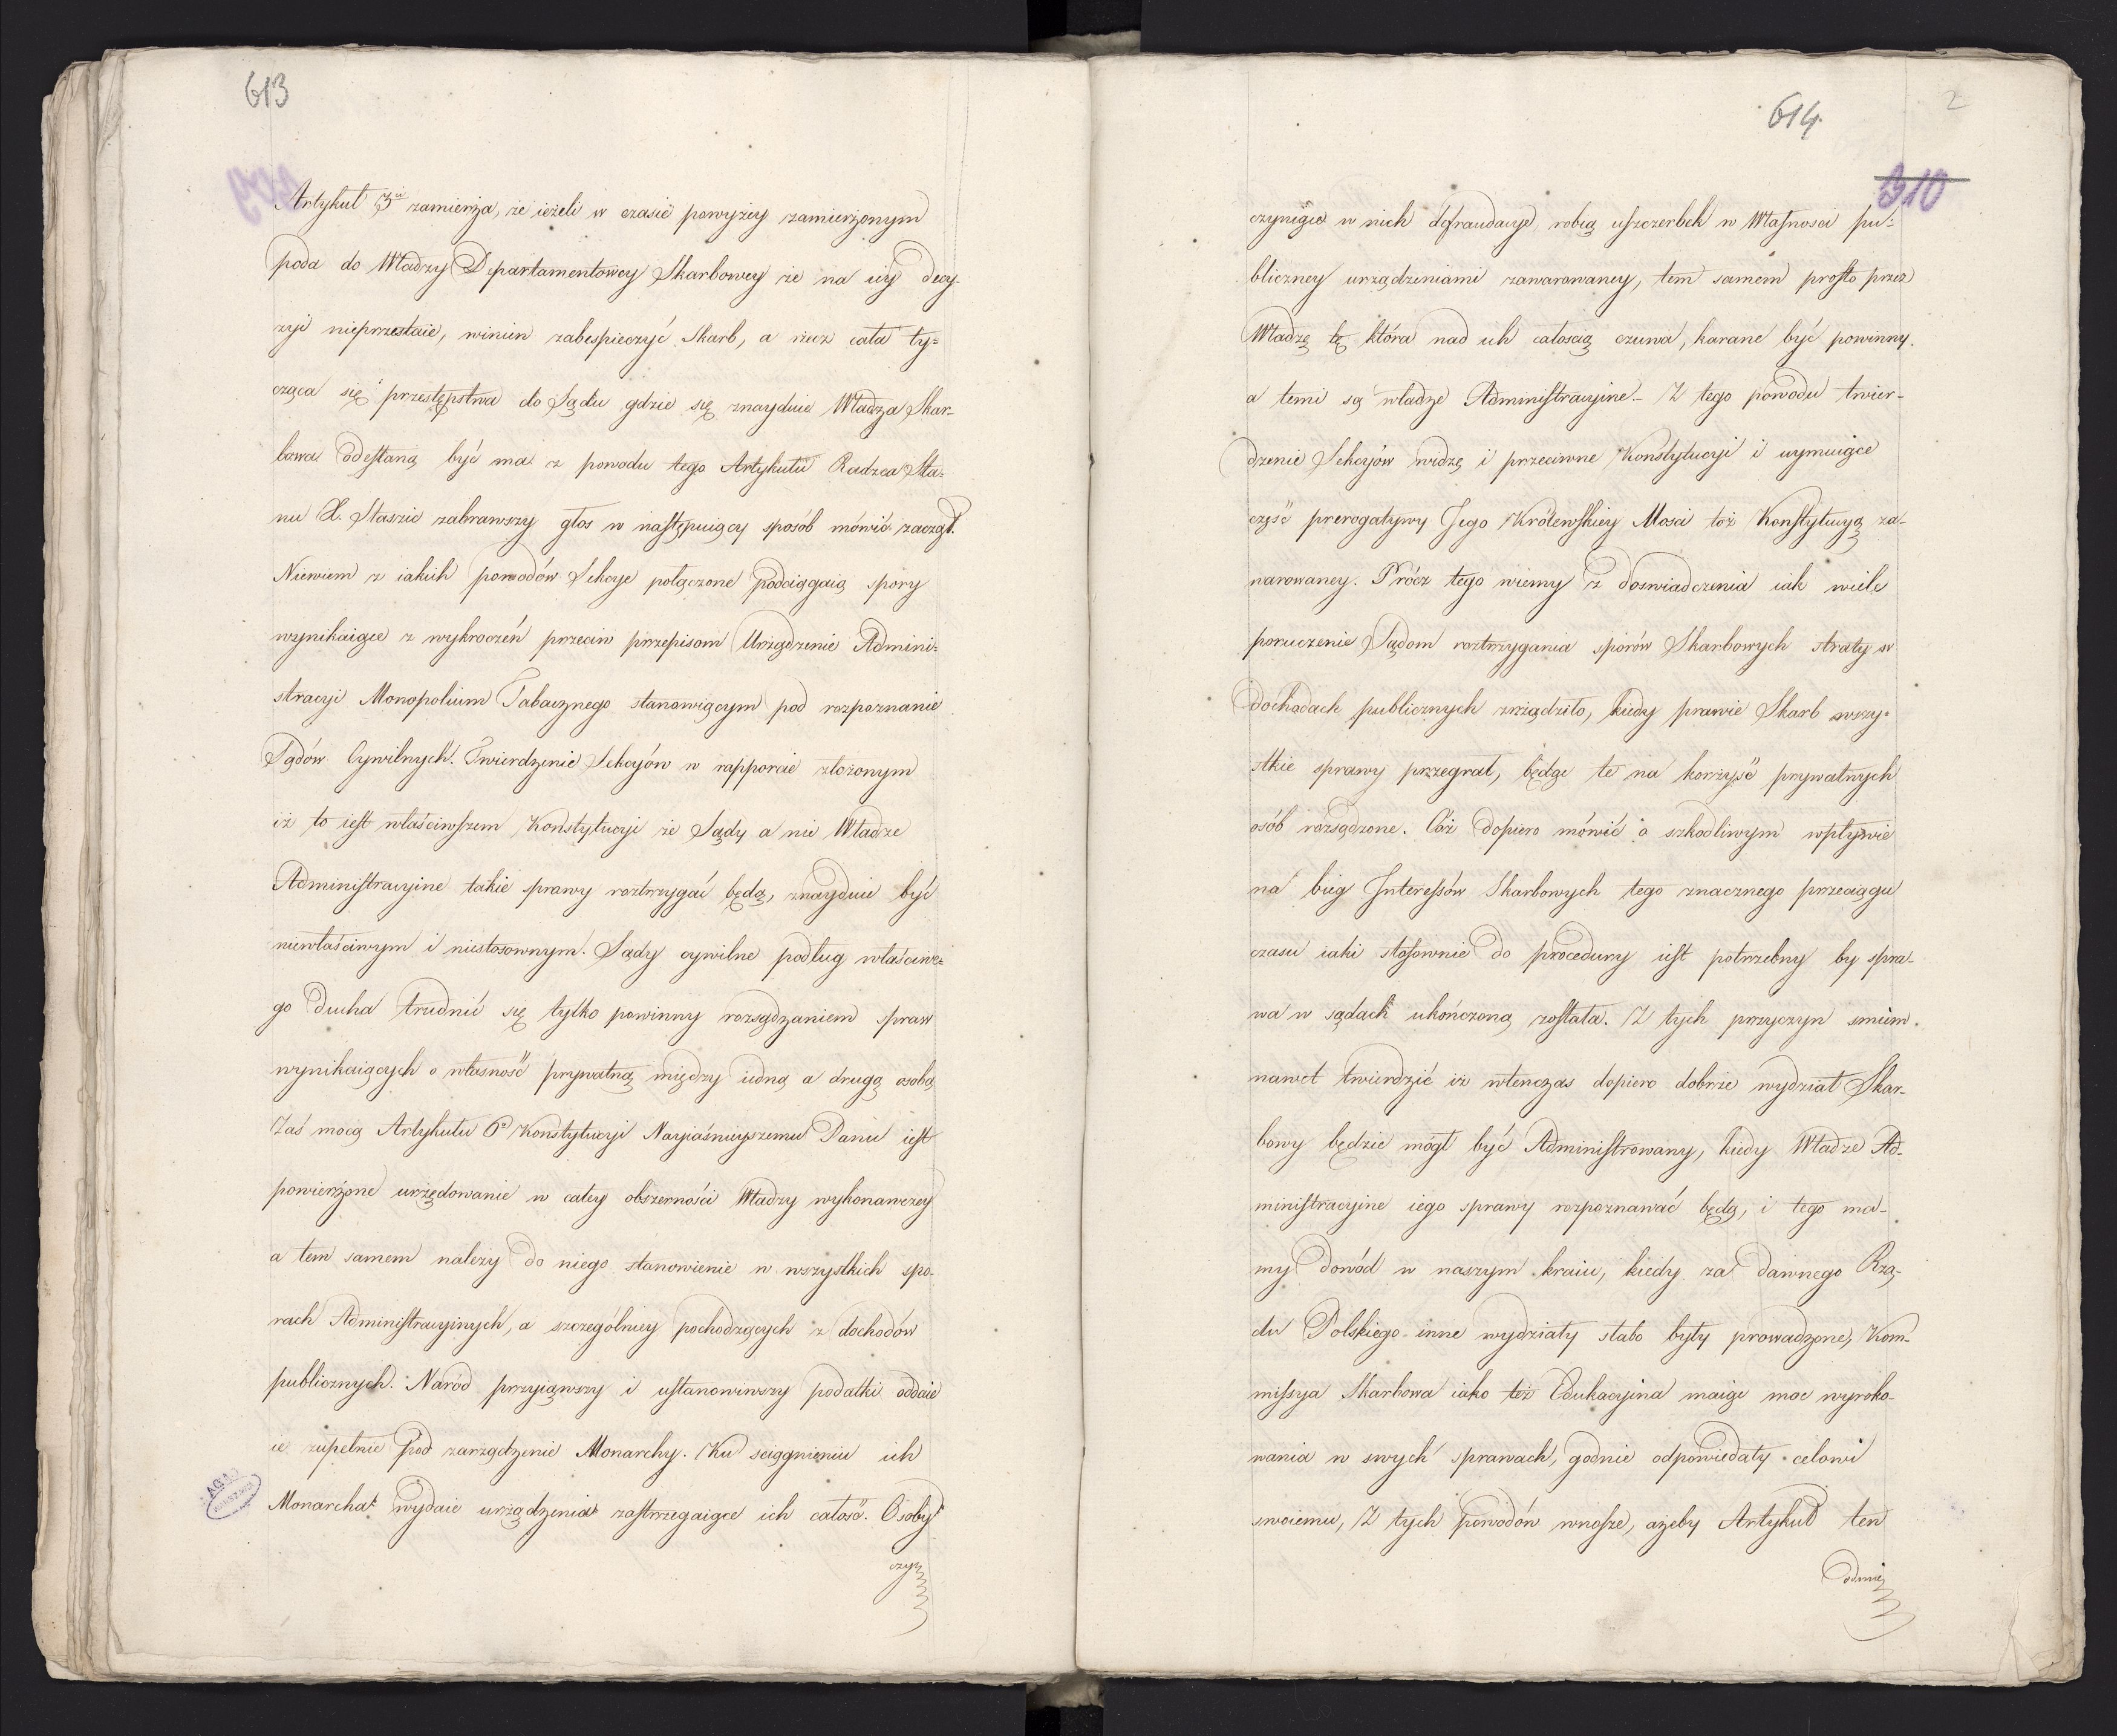 613
Artykuł 3ci zamierza, że ieżeli w czasie powyżey zamierzonym
poda do Władzy Departamentowey Skarbowey że na iey decy-
zyi nieprzestaie, winien zabespieczyć Skarb, a rzecz cała ty=
cząca się przestępstwa do Sądu gdzie się znayduie Władza Skar-
bowa odesłaną być ma z powodu tego Artykułu Radzca Sta-
nu X. Staszic zabrawszy głos w następuiący sposób mówić zaczął.
Niewiem z iakich powodów Sekcye połączone podciągaią spory
wynikaiące z wykroczeń przeciw przepisom Urządzenie Admini-
stracyi Monopolium Tabacznego stanowiącym pod rozpoznanie
Sądów Cywilnych. Twierdzenie Sekcyów w rapporcie złożonym
iż to iest właściwszem Konstytucyi że Sądy a nie Władze
Administracyine takie sprawy roztrzygać będą, znayduie być
niewłaściwym i niestosownym. Sądy cywilne podług właściwe=
go ducha trudnić się tylko powinny rozsądzaniem spraw
wynikaiących o własność prywatną między iedną a drugą osobą
Zaś mocą Artykułu 6o Konstytucyi Nayiaśnieyszemu Panu iest
powierzone urzędowanie w całey obszerności Władzy wykonawczey
a tem samem należy do niego stanowienie w wszystkich spo-
rach Administracyinych, a szczególniey pochodzących z dochodów
publicznych. Naród przyiąwszy i ustanowiwszy podatki oddaie
ie zupełnie pod zarządzenie Monarchy. Ku sciągnieniu ich
Monarcha wydaie urządzenia zastrzegaiące ich całość. Osoby
czy
AGAD
614
2
310
czyniące w nich defraudacye, robią uszczerbek w Własnosci pu-
bliczney urządzeniami zawarowaney, tem samem prosto przez
Władzę tę która nad ich całoscią czuwa, karane być powinny.
a temi są władze Administracyine. Z tego powodu twier-
dzenie Sekcyów widzę i przeciwne Konstytucyi i uymuiące
część prerogatywy Jego Królewskiey Mosci toż Konstytucyą za-
warowaney. Prócz tego wiemy z doswiadczenia iak wiele
poruczenie Sądom roztrzygania sporów Skarbowych straty w
dochodach publicznych zrządziło, kiedy prawie Skarb wszy-
stkie sprawy przegrał, będąc te na korzyść prywatnych
osób rozsądzone. Cóż dopiero mówić o szkodliwym wpływie
na bieg Interessów Skarbowych tego znacznego przeciągu
czasu iaki stosownie do procedury iest potrzebny by spra-
wa w sądach ukończoną została. Z tych przyczyn smiem
nawet twierdzić iż wtenczas dopiero dobrze wydział Skar-
bowy będzie mógł być Administrowany, kiedy Władze Ad-
ministracyine iego sprawy rozpoznawać będą, i tego ma-
my dowód w naszym kraiu, kiedy za dawnego Rzą-
du Polskiego inne wydziały słabo były prowadzone, Kom-
missya Skarbowa iako też Edukacyina maiąc moc wyroko-
wania w swych sprawach, godnie odpowiedały celowi
swoiemu, Z tych powodów wnoszę, ażeby Artykuł ten
odmie